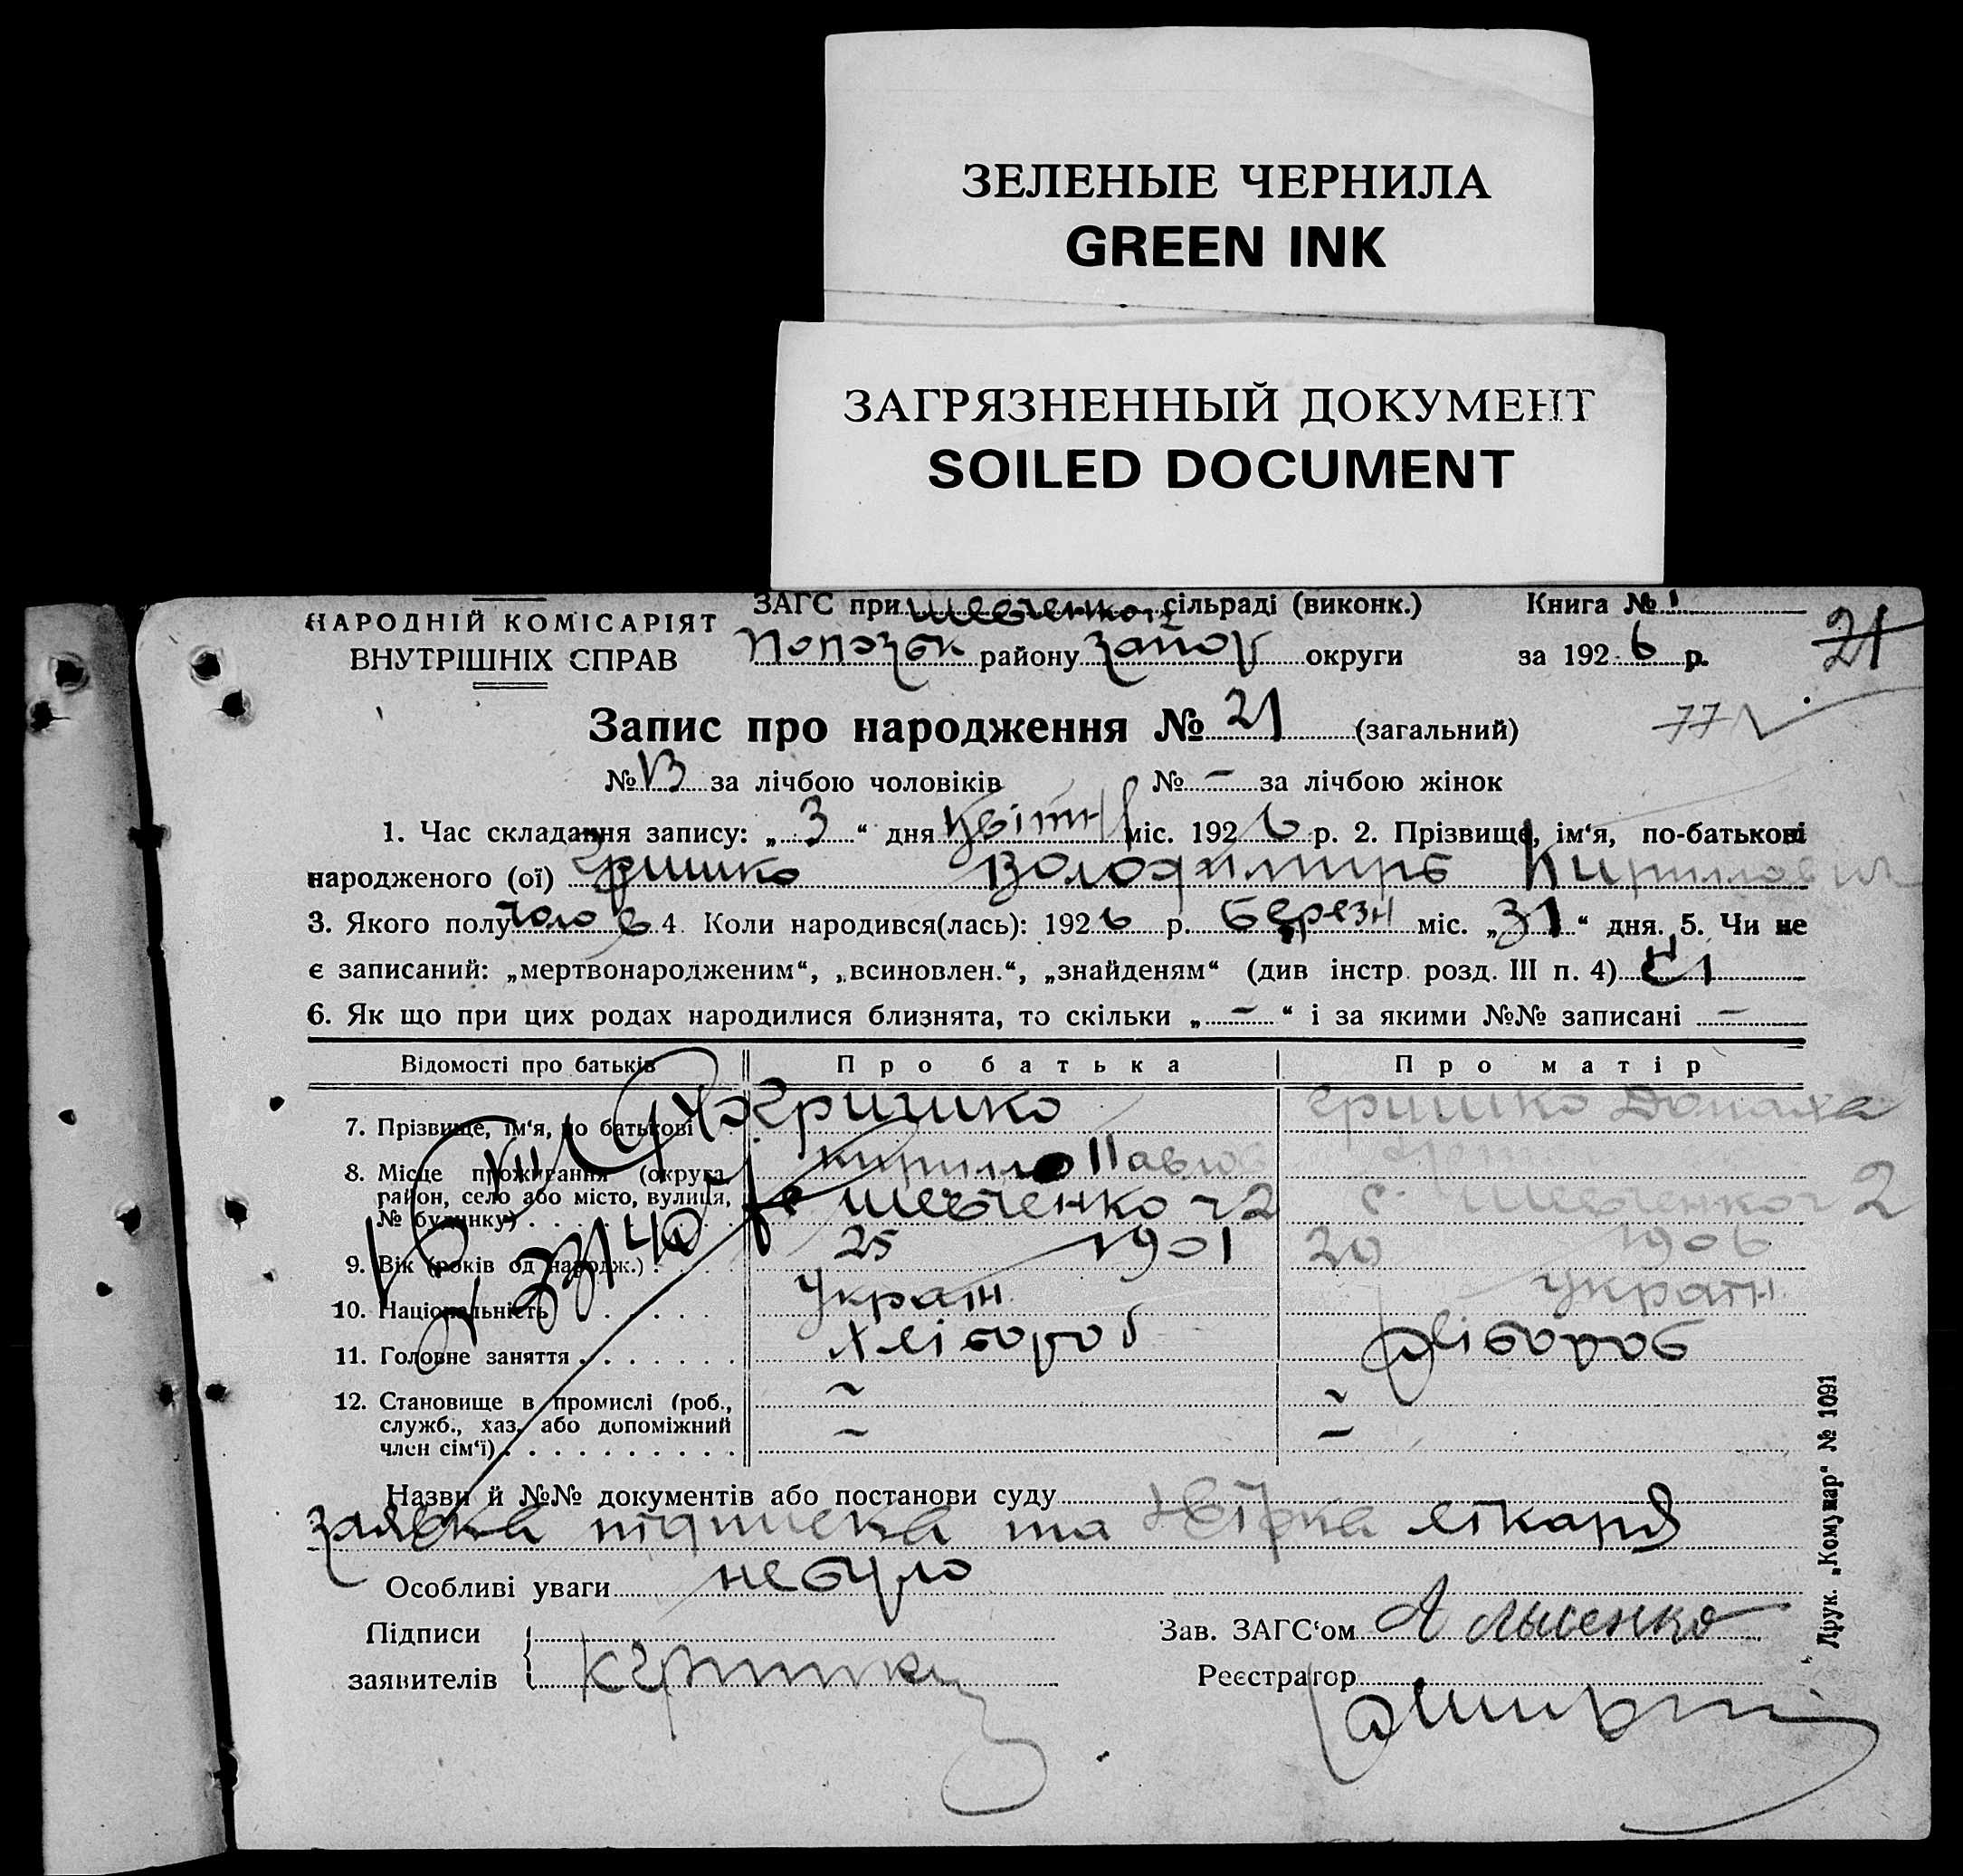 ЗЕЛЕНЫЕ ЧЕРНИЛА
GREEN INK
ЗАГРЯЗНЕННЫЙ ДОКУМЕНТ
SOILED DOCUMENT
НАРОДНІЙ КОМІСАРІЯТ
ВНУТРІШНІХ СПРАВ
ЗАГС при Шевченков сільраді (виконк.) Книга № 1
району Запор округи за 1926 р. 21
Запис про народження № 21 (загальний) 77
№ 13 за лічбою чоловіків № – за лічбою жінок
1. Час складання запису: „ 3 “ дня Квітня міс. 1926 р. 2. Прізвище, ім‘я, по-батькові
народженого (ої) Гришко Володимиръ Кириллович
3. Якого полу чолов 4. Коли народився(лась): 1926 р. Березн міс. „ 31 “ дня. 5. Чи не
є записаний: „мертвонародженим“, „всиновлен.“, „знайденям“ (див інстр. розд. III п. 4) Ні
6. Як що при цих родах народилися близнята, то скільки „ – “ і за якими №№ записані –
Відомості про батьків Про батька Про матір
7. Прізвище, ім‘я, по батькові Гришко Гришко Домаха
Кирилло Павлов
8. Місце проживання (округа, район, село або місто, вулиця, № будинку) Шевченко ч 2 с. Шевченко ч 2
9. Вік (років од народж.) 25 1901 20 1906
10. Національність Україн Україн
11. Головне заняття Хлібороб Хлібороб
12. Становище в промислі (роб., служб., хаз. або допоміжний член сім‘ї) – –
– –
Назви й №№ документів або постанови суду
заявка підписка та лікаря
Особливі уваги не було
Підписи
заявителів К Гришко
Зав. ЗАГС‘ом А Лысенко
Реєстратор
Друк. „Комунар“ № 1091